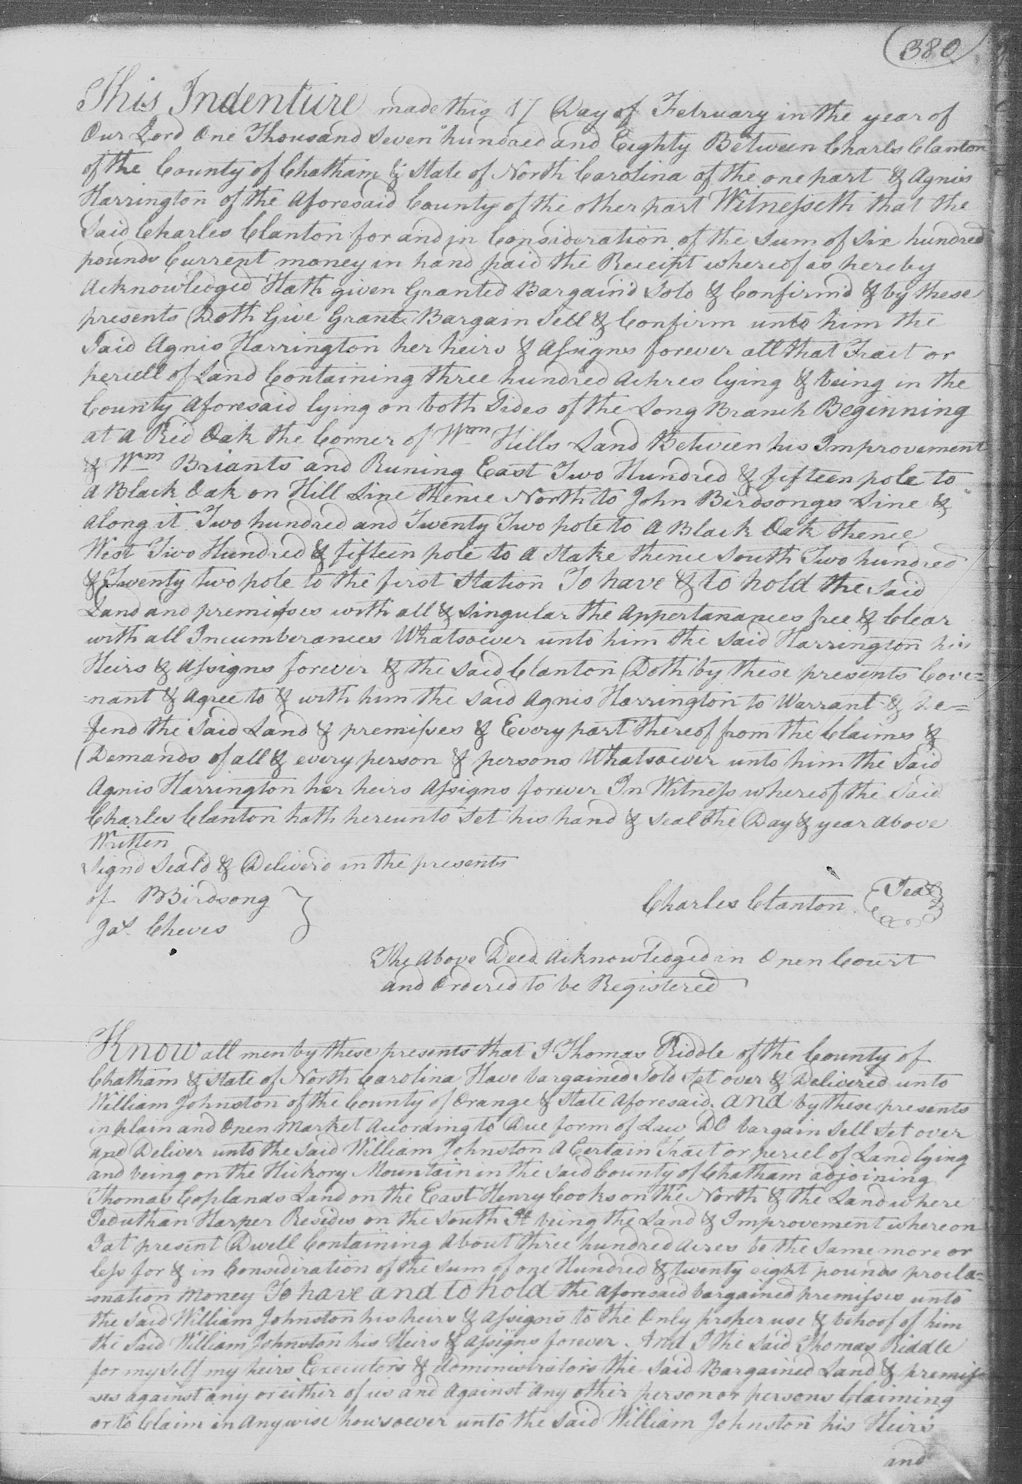 380
This Indenture made this 17 Day of February in the year of
Our Lord One Thousand Seven hundred and Eighty Between Charles Clanton
of the County of Chatham & State of North Carolina of the one part & Agnis
Harrington of the Aforesaid County of the other part Witnesseth that the
Said Charles Clanton for and in Consideration of the Sum of Six hundred
pounds Current money in hand paid the Receipt whereof as hereby
Acknowledged Hath given Granted Bargain'd Sold & Confirm'd & by these
presents Doth Give Grant Bargain Sell & Confirm unto him the
Said Agnis Harrington her heirs & Assigns forever all that Trait or
periell of Land Containing three hundred Ackres lying & being in the
County Aforesaid lying on both Sides of the Long Branch Beginning
at a Red Oak the Corner of Wm Hills Land Between his Improvement
& Wm Briants and Runing East Two Hundred & fifteen pole to
a Black Oak on Hill Line thence North to John Birdsongs Line &
along it Two hundred and Twenty Two pole to a Black Oak thence
West Two Hundred & fifteen pole to a Stake thence South Two hundred
& Twenty two pole to the first Station To have & to hold the Said
Land and premisses with all & Singular the Appertanances free & Clear
with all Incumberances Whatsoever unto him the Said Harrington his
Heirs & Assigns forever & the Said Clanton Doth by these presents Cove=
-nant & Agree to & with him the Said Agnis Harrington to Warrant & De=
-fend the Said Land & premisses & Every part thereof from the Claims &
Demands of all & every person & persons Whatsoever unto him the Said
Agnis Harrington her heirs Assigns forever In Witness whereof the Said
Charles Clanton hath hereunto Set his hand & Seal the Day & year above
Written
Signd Seald & Deliverd in the presents
of B Birdsong
Charles Clanton Seal
Jas. Cheves
The Above Deed Acknowledged in Open Court
and Ordered to be Registered
Know all men by these presents that I Thomas Riddle of the County of
Chatham & State of North Carolina Have bargained Sold Set over & Delivered unto
William Johnston of the County of Orange & State Aforesaid, and by these presents
in plain and Open Market According to Due form of Law DO bargain Sell Set over
and Deliver unto the Said William Johnston A Certain Trait or periel of Land lying
and being on the Hickory Mountain in the Said County of Chatham adjoining
Thomas Coplands Land on the East Henry Cooks on the North & the Land where
Jeduthan Harper Resides on the South It being the Land & Improvement whereon
I at present Dwell Containing About three hundred Acres be the Same more or
less for & in Consideration of the Sum of one Hundred & twenty eight pounds procla=
-mation money To have and to hold the aforesaid bargained premisses unto
the Said William Johnston his heirs & Assigns to the Only proper use & behoof of him
the Said William Johnston his Heirs & Assigns forever. And I the Said Thomas Riddle
for my Self my heirs Executors & Administrators the Said Bargained Land & premiss
ses against any or either of us and Against any other person or persons Claiming
or to Claim in Anywise howsoever unto the Said William Johnston his Heirs
and